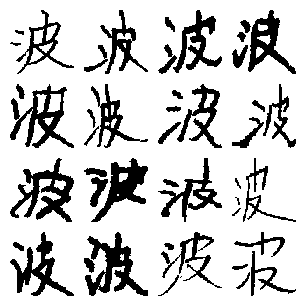 波波波波
波波波波
波波波波
波波波波